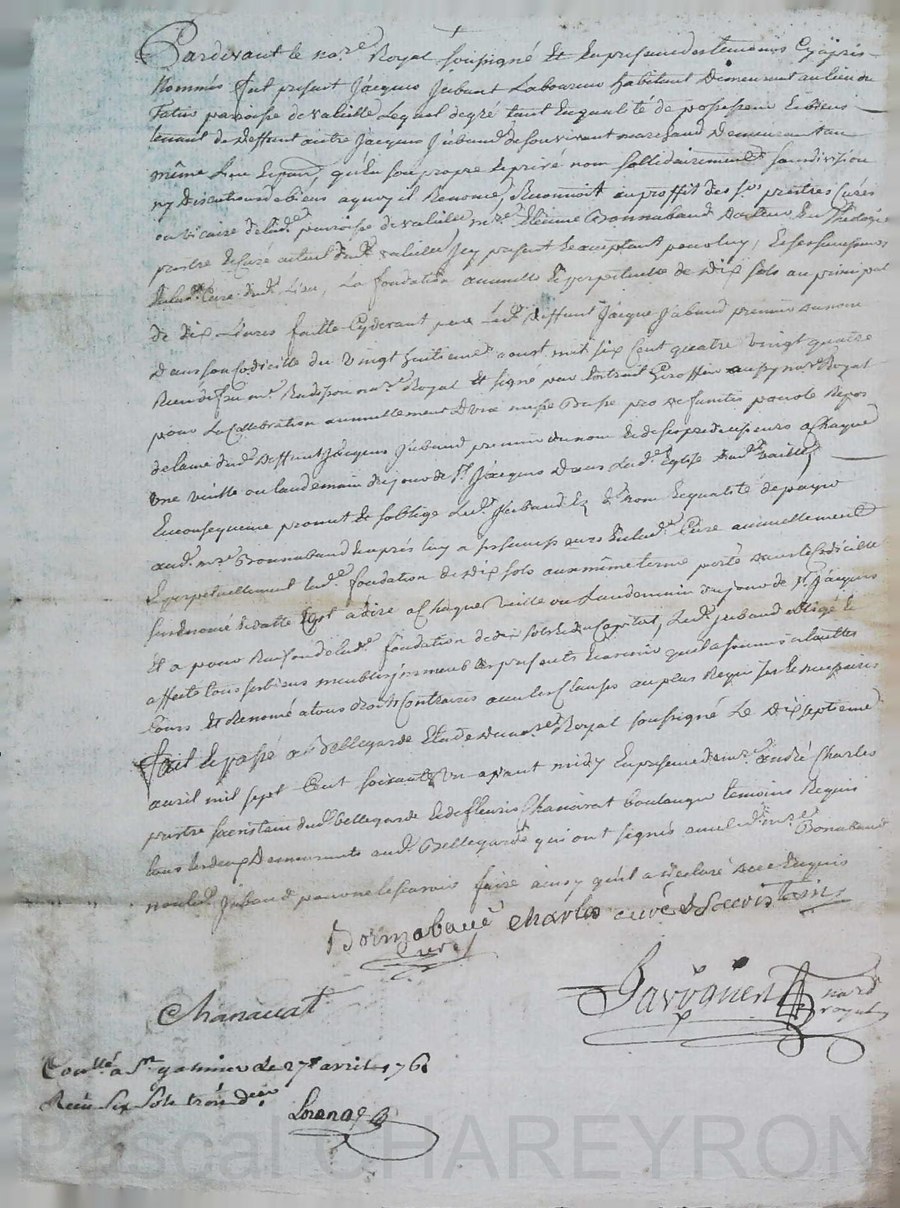 Pardevant le no.re Royal soussigné Et en presence des temoins Cy apres
Nommés fut present Jacques Jabaud Laboureur habitant Demeurant au lieu du
paroisse de valeille Lequel degré tant En qualité de possesseur Et biens
tenant de deffunt autre Jacques Jabaud de son vivant marchand Demeurant au
même Lieu qu'En son propre Et privé nom sollidairement sans division
ny Discution de biens a quoy il Renonce, Reconnoit au proffit des srs prêtres Curés
ou vicaire de lad. paroisse de valeille mre Etienne Bonnabaud Docteur En Théologie
prestre Et Curé actuel dud. valeille Icy present Et acceptant pour luy, Et ses successeurs
Cure dud. Lieu, La fondation annuelle Et perpetuelle de Dix sols au principal
de dix Livres faitte Cydevant par Led. Deffunt Jacque Jabaud premier du nom
Dans son Codicille du vingt huitieme aoust mil six Cent quatre vingt quatre
Receu deffeu me no.re Royal Et signé par Extrait aussy no.re Royal
pour La Cellebration annuellement D'une messe Basse pro defunctis pour le Repos
de l'ame dud. Deffunt Jacques Jabaud premier du nom Et de ses predecesseurs a Chaque
une veille ou landemain du jour de St Jacques Dans Lad. Eglise dud. vaeille,
En consequence promet Et s'oblige Led. Jabaud Es d. nom Et qualité de payer
aud. mre Bonnabaud Et après luy a ses successeurs En lad. Cure annuellement
Et perpetuellement lad. fondation de Dix sols aux même terme porté dans le Codicille
surdnomé Et datté C'est a dire a Chaque veille ou Landemain du jour de St Jacques
Et a pour Raison de lad. fondation de dix sols Et du Capital, Led. Jabaud obligé Et
affecté tous ses biens meubles, immeubles presents Et avenir qu'il a soumis a touttes
Cours Et Renoncé a tous droits Contraires avec les Clauses au plus Requises Et necessaires
Fait Et passé a Bellegarde Etude du no.re Royal soussigné Le Dix septieme
avril mil sept Cent soixante Un avant midy En presence de mre andré Charles
prestre sacristain dud. bellegarde Et de fleuris Chanavat boulanger temoins Requis
tous les deux Demeurants aud. Bellegarde qui ont signés avec led. mre Bonabaud
non led. Jabaud pour ne le scavoir faire ainsy qu'il a Declaré de ce Enquis
Bonnabaud Charles curé & Sacristain
curé
Chanavat
no.re
royal
Conllé a St galmier le 27e avril 1761
Receu six sols trois d.ers